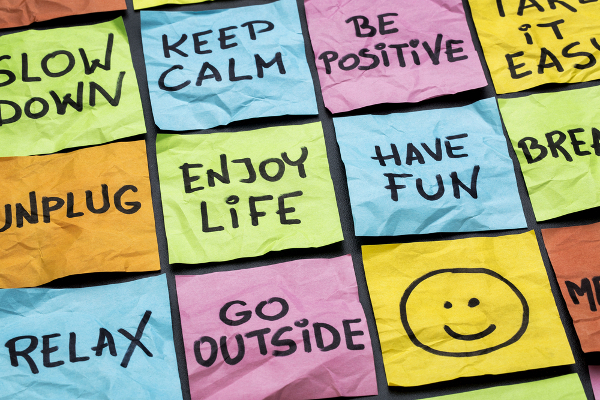 SLOW
DOWN
KEEP
CALM
BE
POSiTiVE
TAKE
iT
EASY
UNPLUG
ENJOY
LiFE
HAVE
FUN
RELAX
GO
OUTSiDE